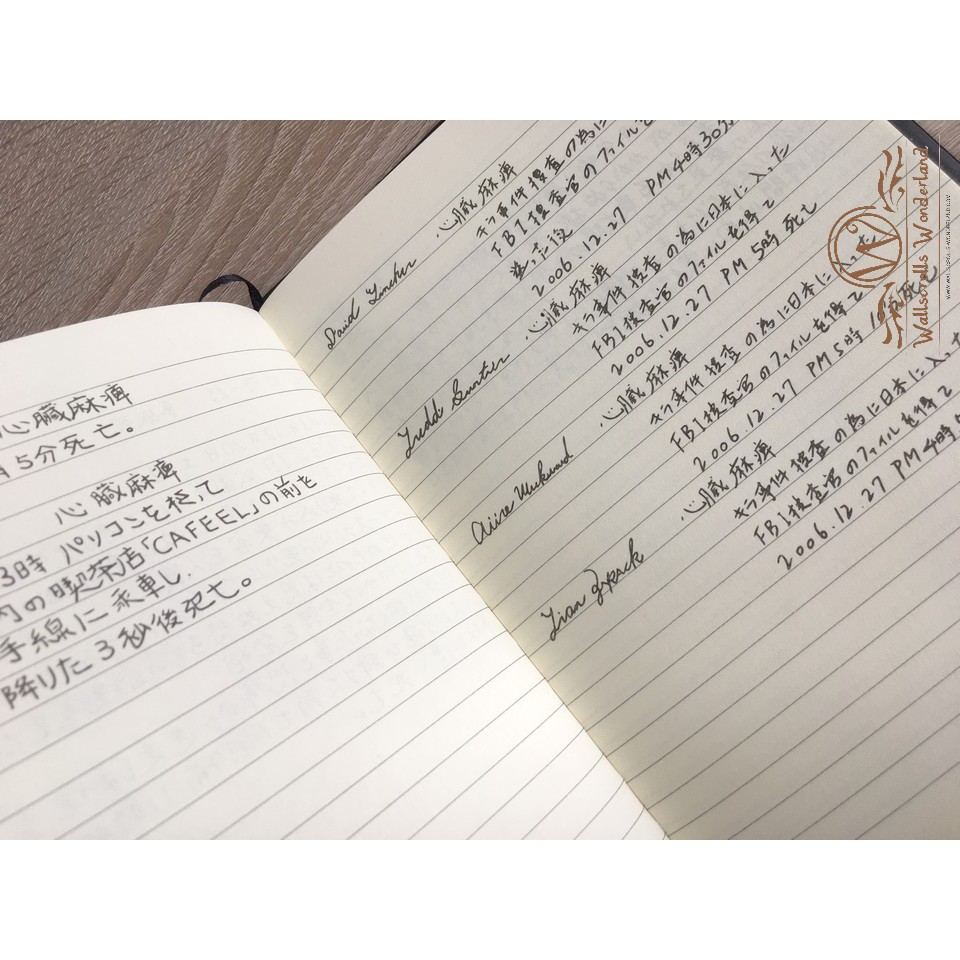 心臓麻痺
5分死亡。
心臓麻痺
パソコンを
内の喫茶店「CAFEEL」の前を
手線に乗車し、
降りた3秒後死亡。
心臓麻痺
キラ事件捜査の為に
FBI捜査官のファイルを
2006.12.27 PM4時30分
David
心臓麻痺
キラ事件捜査の為に日本に入った
FBI捜査官のファイルを得て
2006.12.27 PM5時死亡
心臓麻痺
キラ事件捜査の為に日本に入った
FBI捜査官のファイルを得て
2006.12.27 PM5時
心臓麻痺
キラ事件捜査の為に日本に入った
FBI捜査官のファイルを得て
2006.12.27 PM4時
Lian
Wallscrolls Wonderland